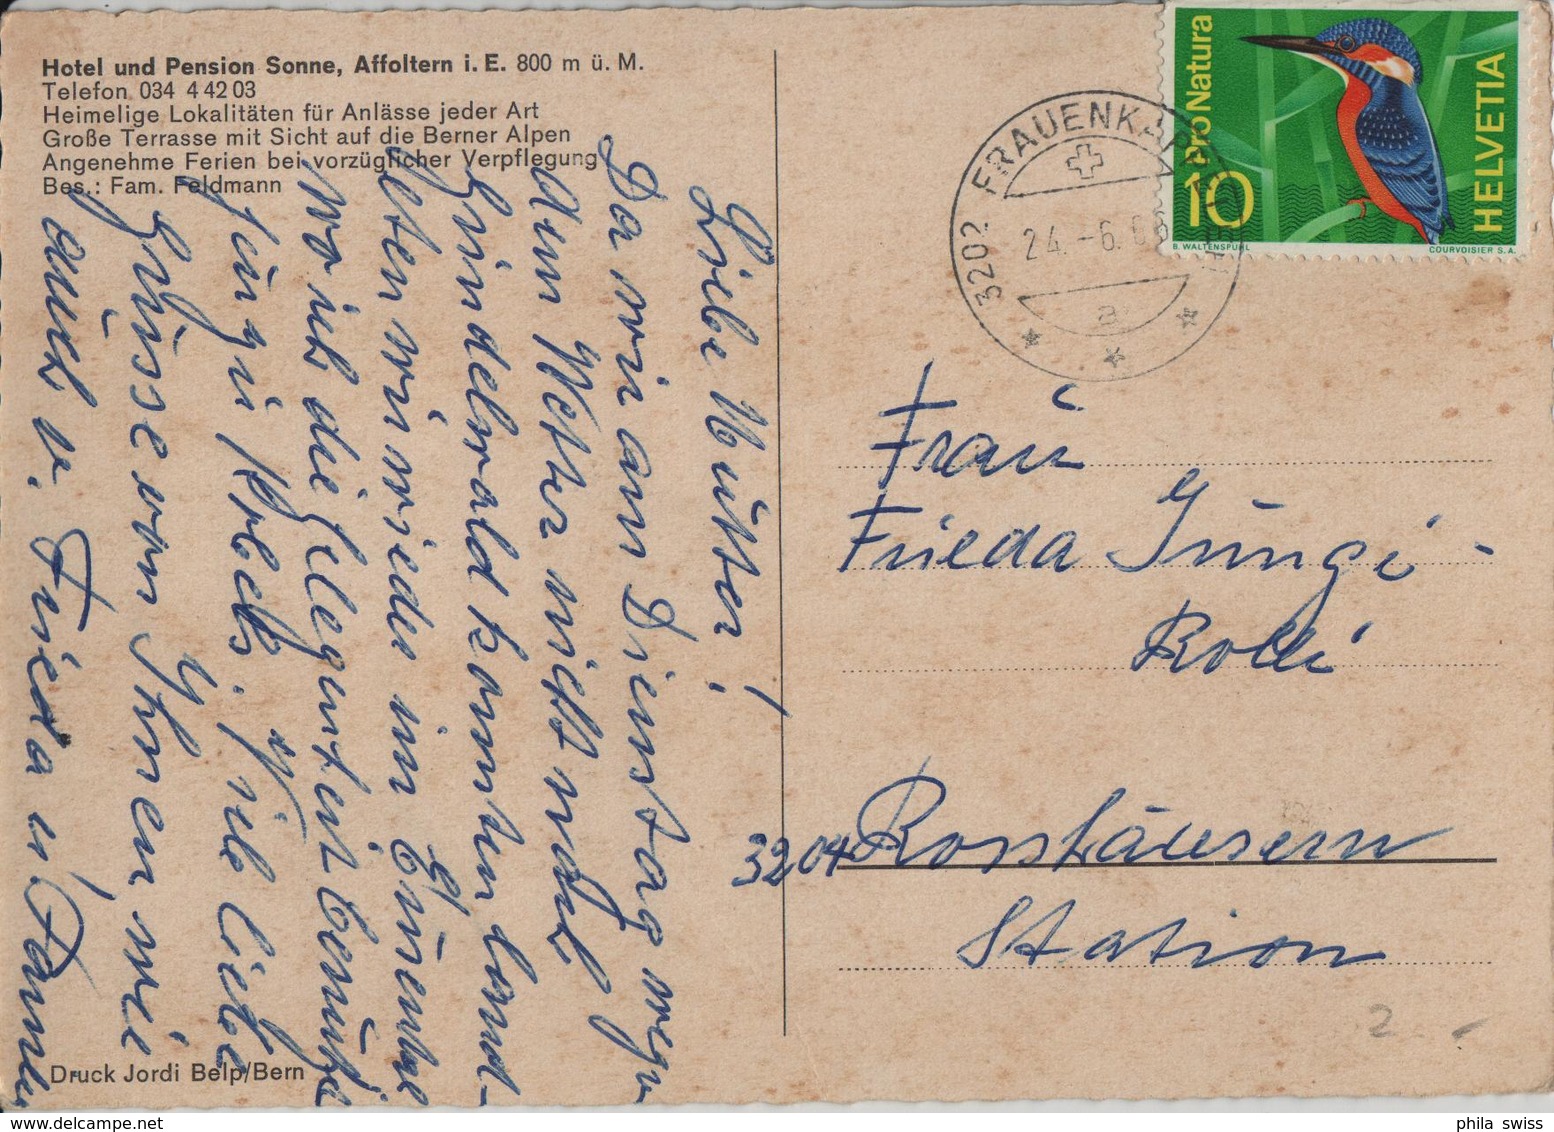 Hotel und Pension Sonne, Affoltern i. E. 800 m ü. M.
Telefon 034 4 42 03
Heimelige Lokalitäten für Anlässe jeder Art
Große Terrasse mit Sicht auf die Berner Alpen
Angenehme Ferien bei vorzüglicher Verpflegung
Bes.: Fam. Feldmann
Liebe Mutter!
Da wir am Dienstag wegen
dem Wetter nicht nach
Grindelwald konnten land-
eten wir wieder im Emmental
wo ich die Gelegenheit benütze
für zu
. Viele liebe
Grüsse von Ihnen wie
auch v. Frieda u.
Druck Jordi Belp/Bern
3202 FRAUENKAPPELEN
24.-6.66
a
Pro Natura
10
HELVETIA
B. WALTENSPÜHL
COURVOISIER S.A.
Frau
Frieda Jüngi -
3204 Rosshäusern
Station
2.-
phila swiss